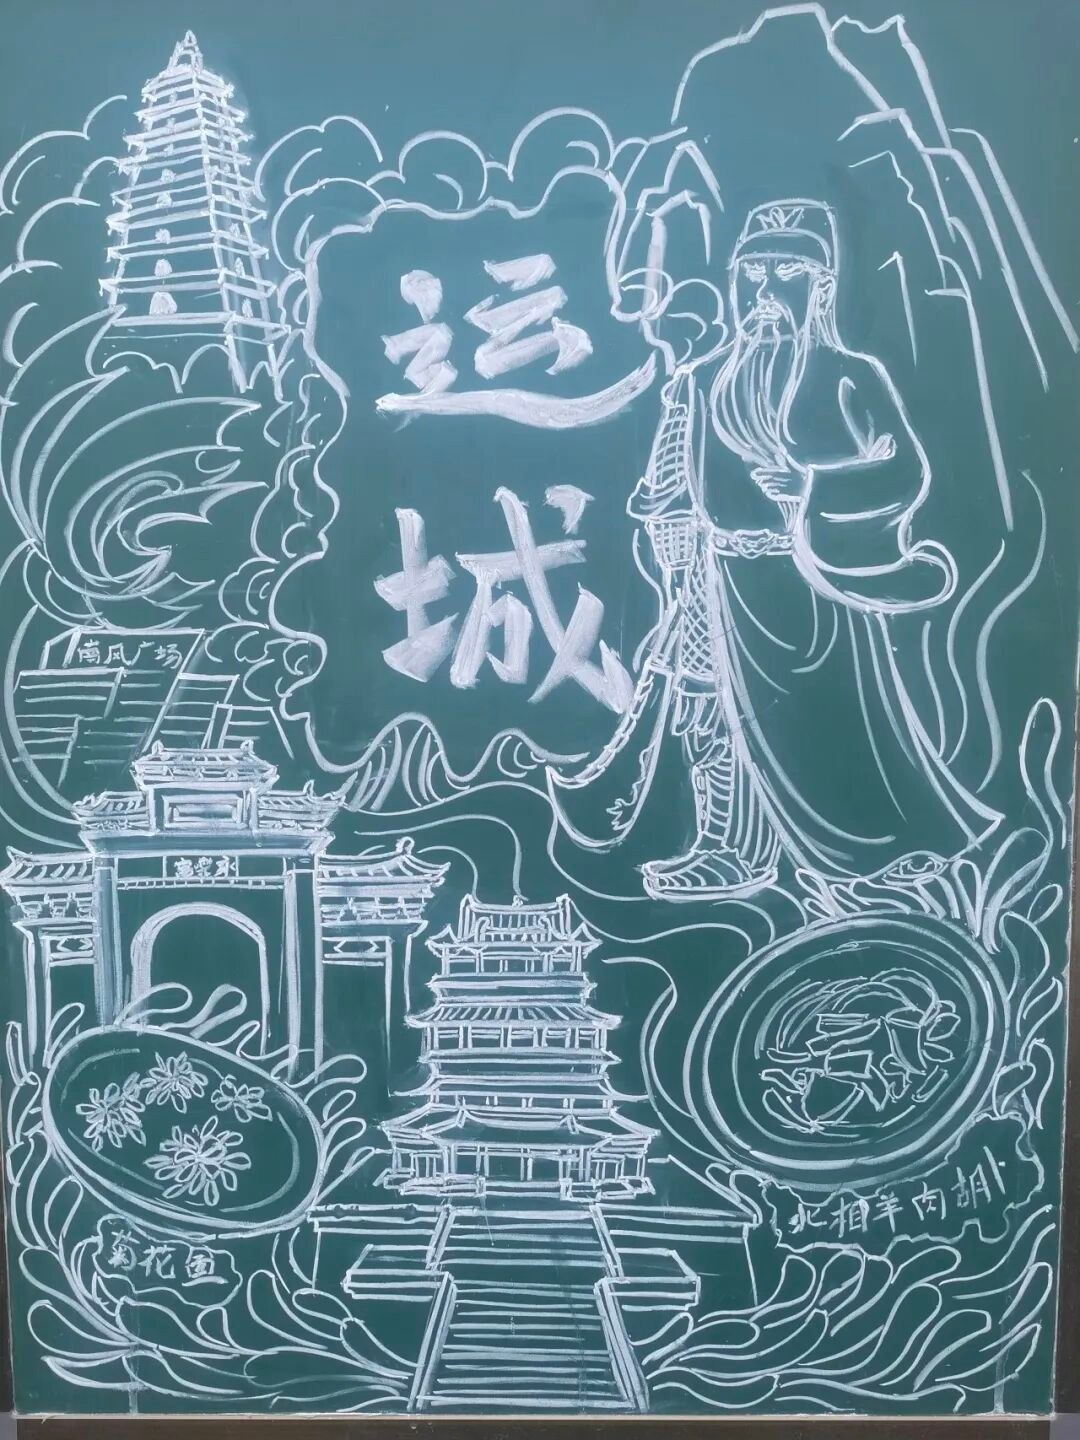 运
城
南风广场
永樂宫
菊花
北相羊肉胡卜